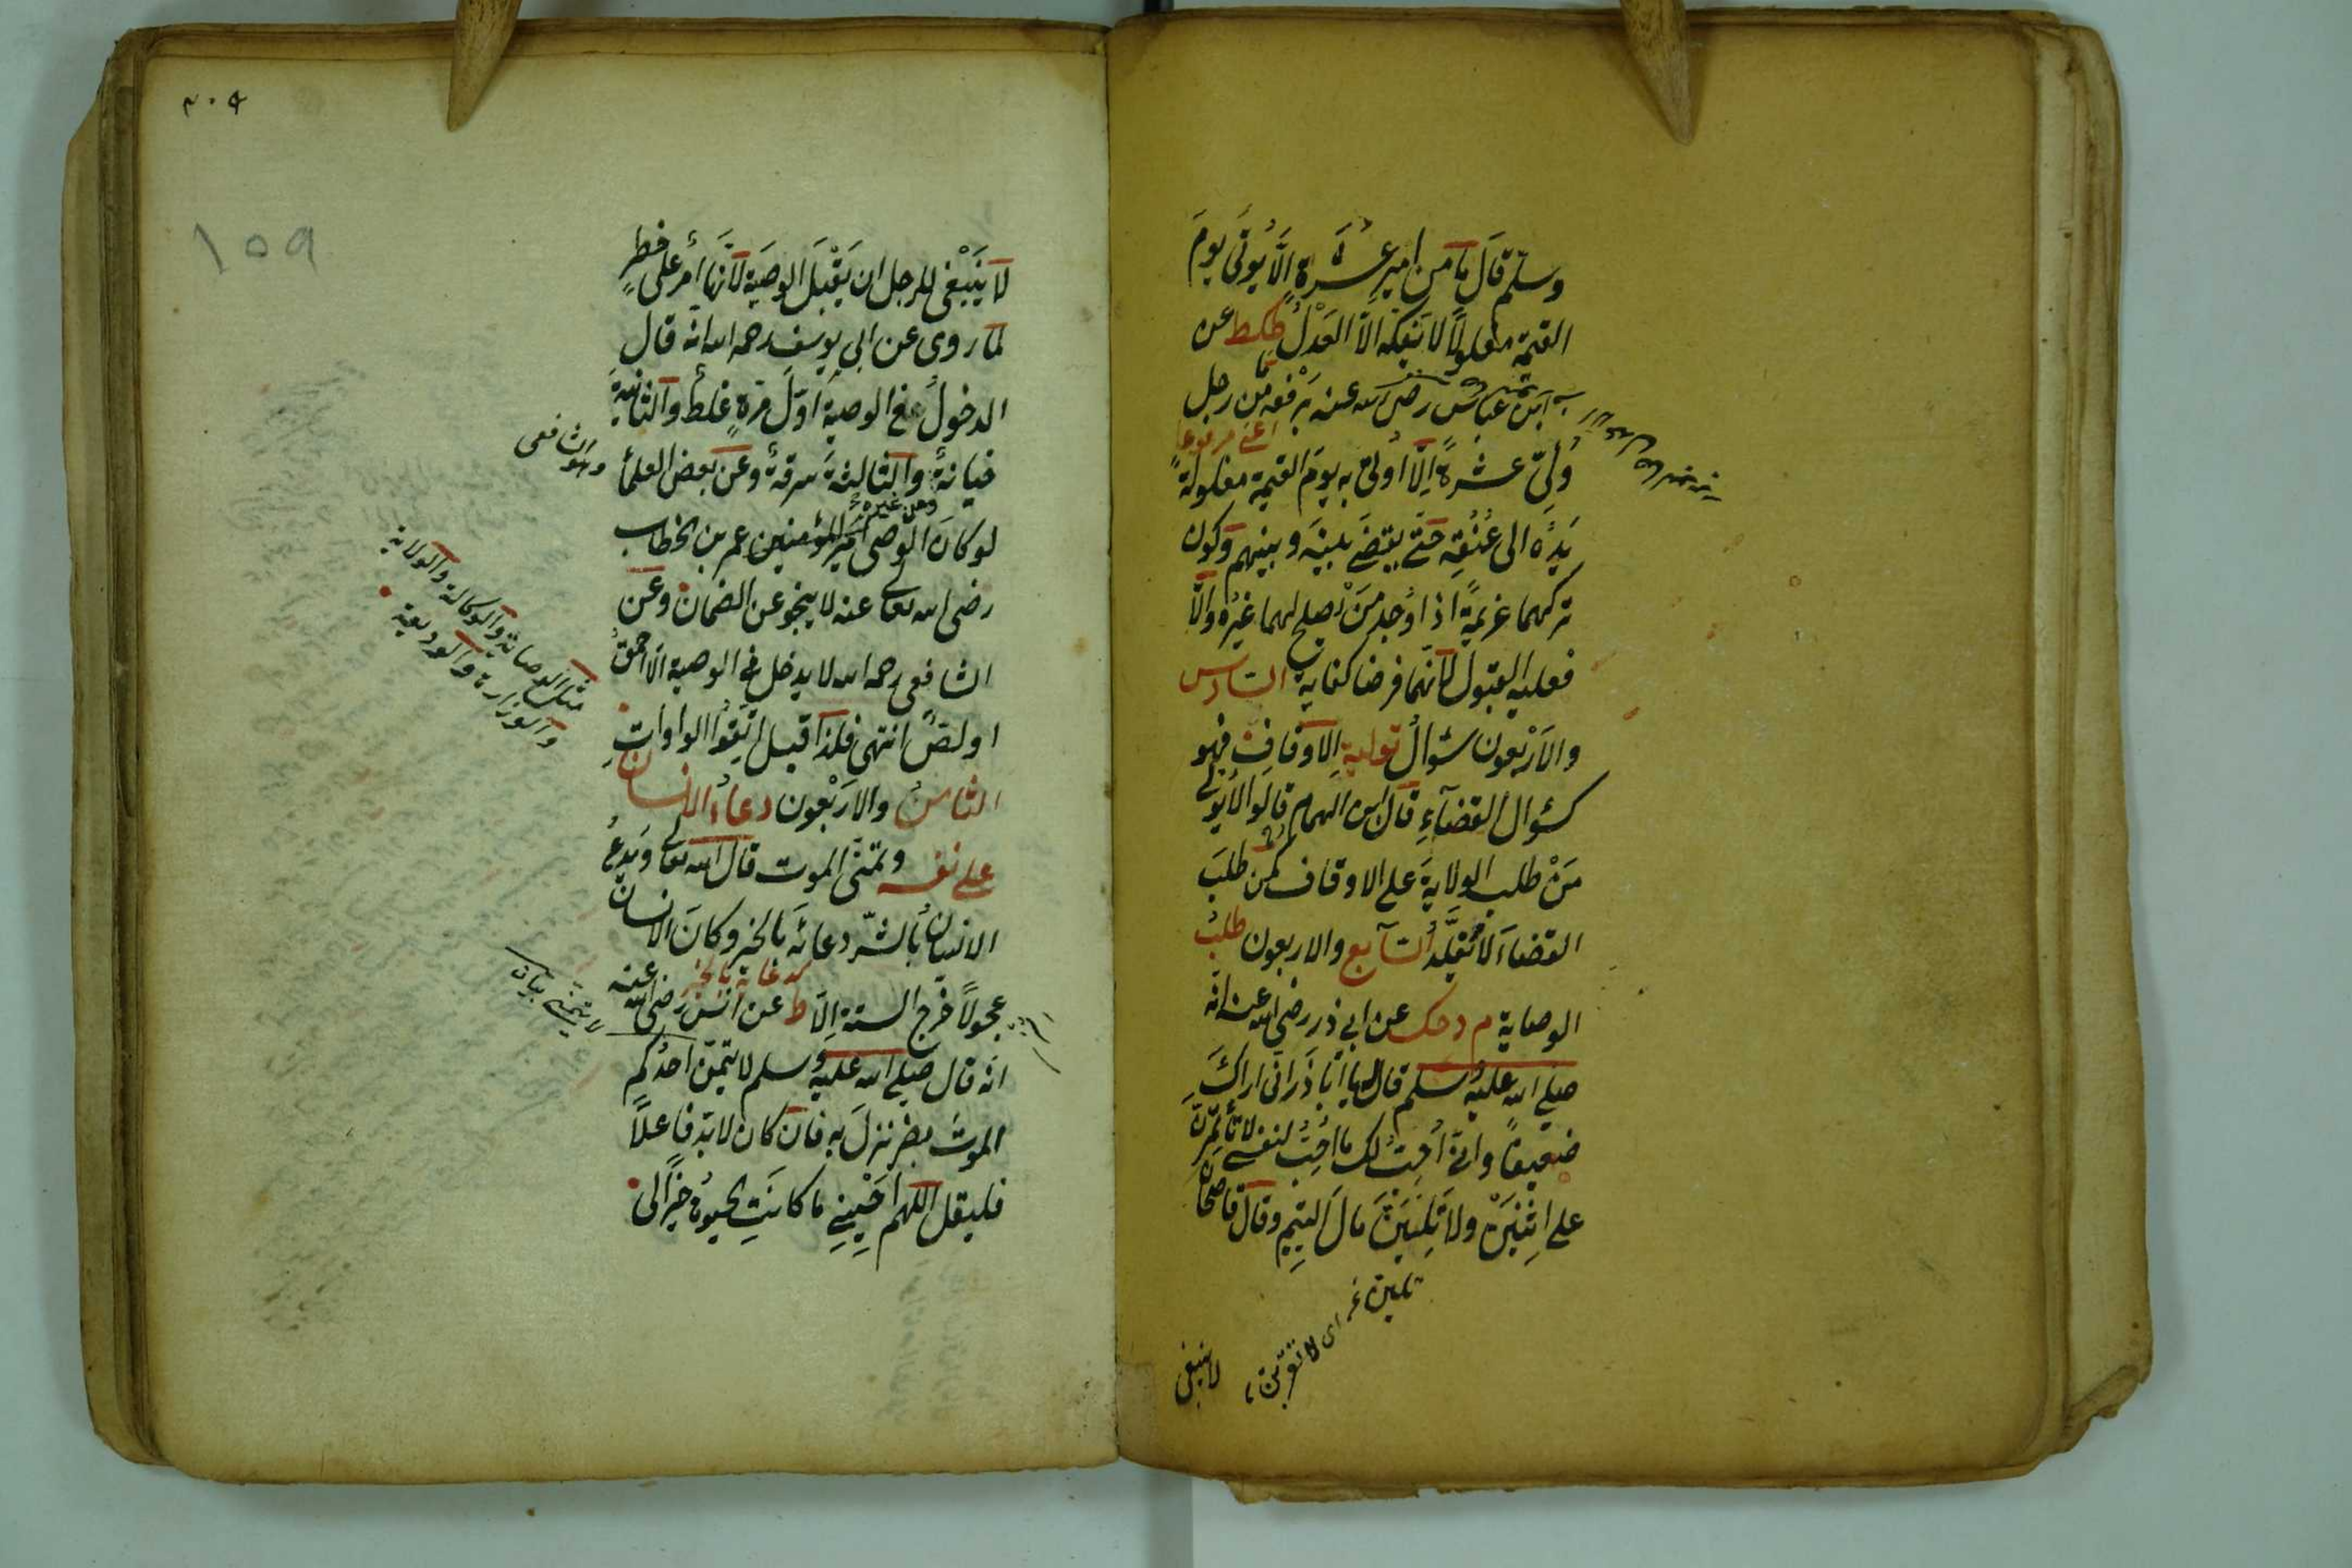 وسلم قال ما من امير عشرة الا يؤتى يوم
القيمة مغلولا لا يفكه الا العدل طكط عن
ابن عباس رضى الله عنه يرفعه ما من رجل
اعنى مرفوعا
ولى عشرة الا اوتى به يوم القيمة مغلولة
يده الى عنقه حتى يقضى بينه وبينهم وكون
تركهما عزيمة اذا وجد من يصلح لهما غيره والا
فعليه القبول لانهما فرضا كفاية السادس
والاربعون سؤال تولية الاوقاف فهو
كسؤال القضاء قال ابن الهمام قالوا لا يولى
من طلب الولاية على الاوقاف كمن طلب
القضاء لا يقلد السابع والاربعون طلب
الوصاية م د حك عن ابى ذر رضى الله عنه انه
صلى الله عليه وسلم قال له يا ابا ذر انى اراك
ضعيفا وانى احب لك ما احب لنفسى لا تأمرن
على اثنين ولا تلين مال اليتيم وقال قاضيخان
اى لا تقربن
لا ينبغى
٢٠٩
159
لا ينبغى للرجل ان يقبل الوصية لانها امر على خطر
لما روى عن ابى يوسف رحمه الله انه قال
الدخول فى الوصية اول مرة غلط والثانية
خيانة والثالثة سرقة وعن بعض العلماء
وهو الشافعى
وعن غيره
لو كان الوصى امير المؤمنين عمر بن الخطاب
رضى الله تعالى عنه لا ينجو عن الضمان وعن
الشافعى رحمه الله لا يدخل فى الوصية الا احمق
او لص انتهى فلذا قيل اتقوا الواوات
مثل الوصاية والوكالة والولاية
والوزارة والوديعة
الثامن والاربعون دعاء الانسان
على نفسه وتمنى الموت قال الله تعالى ويدع
الانسان بالشر دعائه بالخير وكان الانسان
كدعائه بالخير
عجولا خرج الستة الا ط عن انس رضى الله عنه
انه قال صلى الله عليه وسلم لا يتمن احدكم
الموت بضر نزل به فان كان لا بد فاعلا
فليقل اللهم احينى ما كانت الحيوة خيرا لى